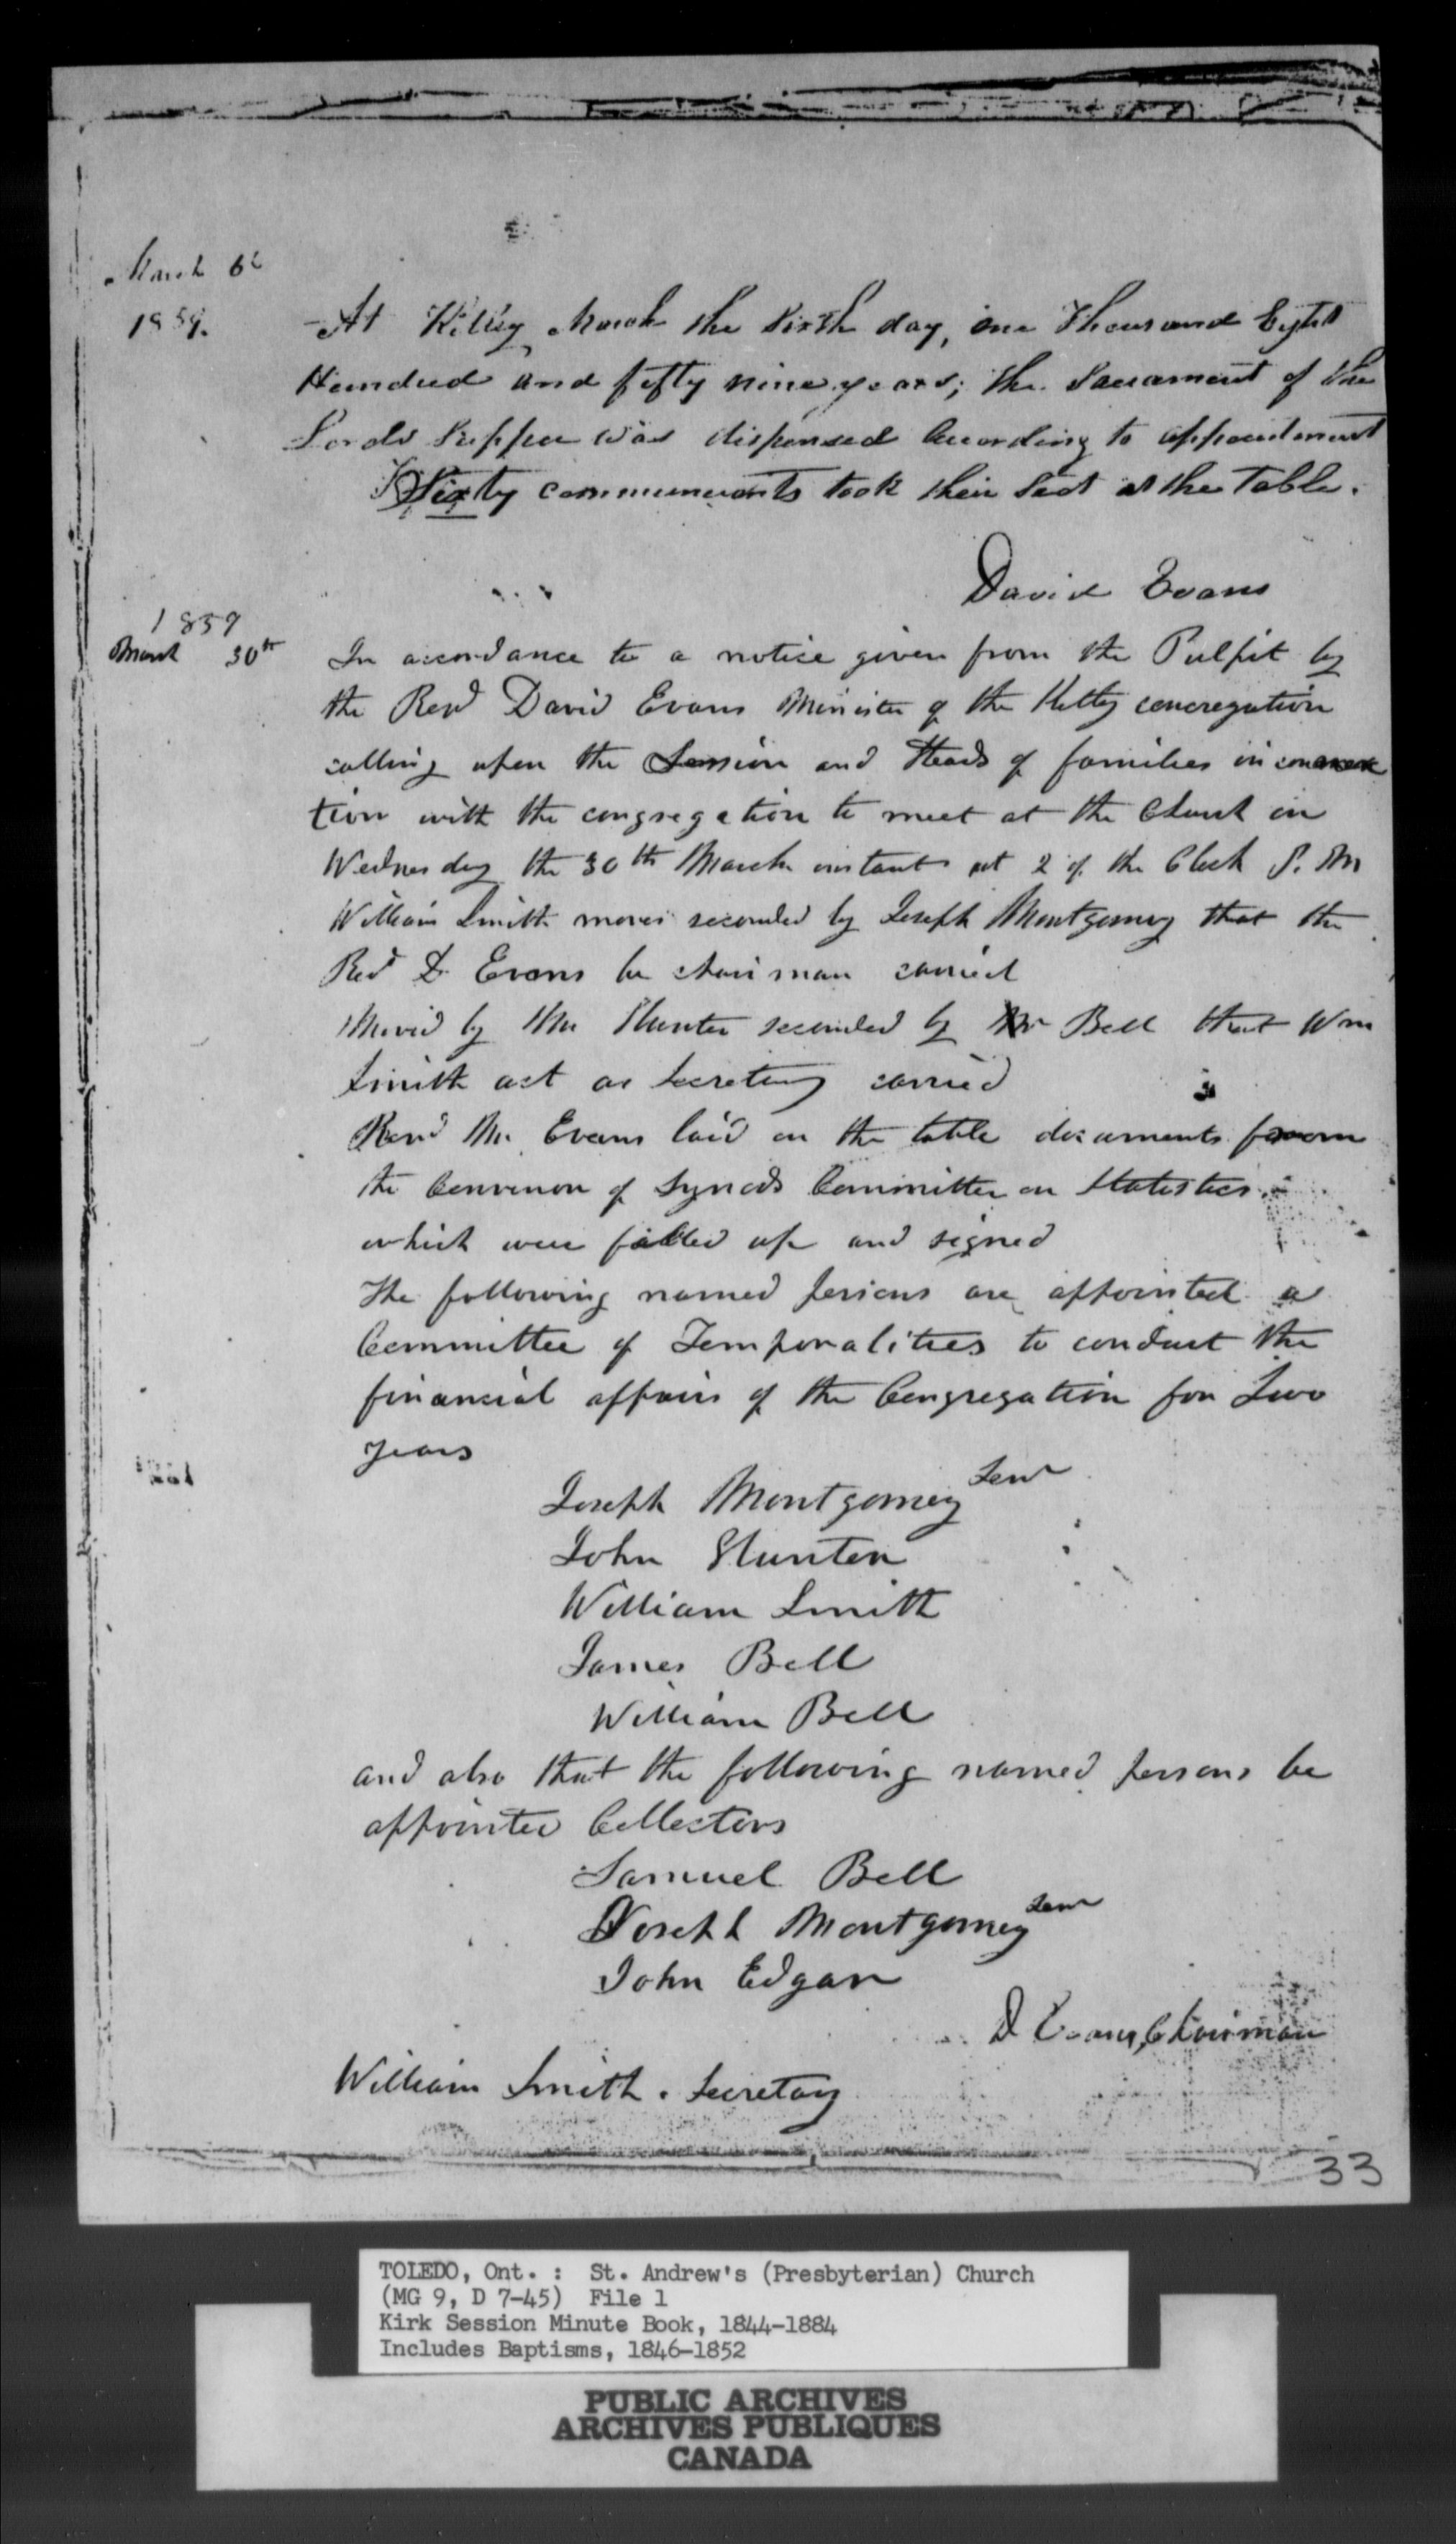 March 6th
1859.
At Kitley March the Sixth day, one Thousand Eight
Hundred and fifty nine years; the Sacrament of the
Lords Supper was dispensed According to appointment
Sixty communicants took their Seat at the Table.
David Evans
1859
March 30th
In accordance to a notice given from the Pulpit by
the Revd David Evans Minister of the Kitley concregation
calling upon the Session and Heads of families in connec
tion with the congregation to meet at the Church on
Wednesday the 30th March instant at 2 of the Clock P. M
William Smith moves seconded by Joseph Montgomery that the
Revd D. Evans be chairman carried
Moved by Mr Hunter seconded by Mr Bell that Wm
Smith act as Secretary carried
Revd Mr. Evans laid on the table documents from
the Convenor of Synods Committee on Statistics
which were filled up and signed
The following named persons are appointed a
Committee of Temporalities to conduct the
financial affairs of the Congregation for Two
years
Joseph Montgomery Senr
John Hunter
William Smith
James Bell
William Bell
and also that the following named persons be
appointed Collectors
Samuel Bell
Joseph Montgomery
John Edgar
D Evans, Chairman
William Smith. Secretary
33
TOLEDO, Ont. : St. Andrew's (Presbyterian) Church
(MG 9, D 7-45) File 1
Kirk Session Minute Book, 1844-1884
Includes Baptisms, 1846-1852
PUBLIC ARCHIVES
ARCHIVES PUBLIQUES
CANADA